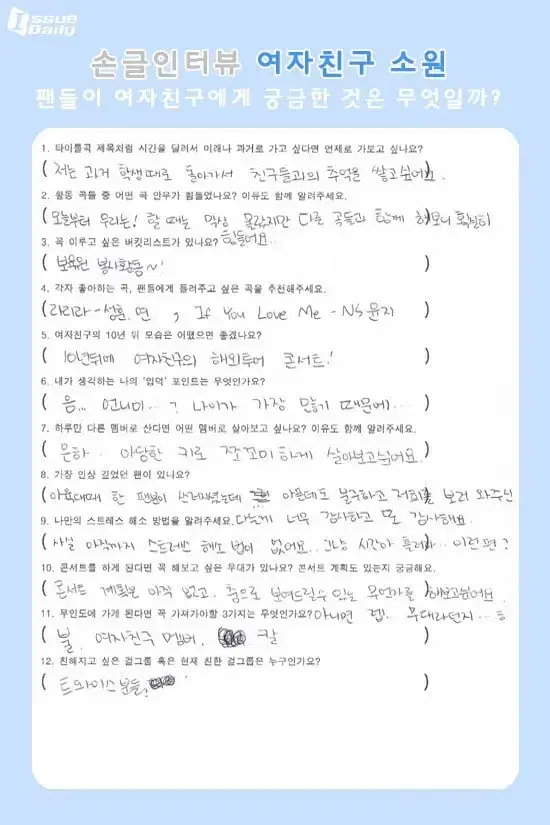 Issue Daily
손글인터뷰 여자친구 소원
팬들이 여자친구에게 궁금한 것은 무엇일까?
1. 타이틀곡 제목처럼 시간을 달려서 미래나 과거로 가고 싶다면 언제로 가보고 싶나요?
( 저는 과거 학생때로 돌아가서 친구들과의 추억을 쌓고싶어요. )
2. 활동 곡들 중 어떤 곡 안무가 힘들었나요? 이유도 함께 알려주세요.
( 오늘부터 우리는! 할 때는 막상 몰랐지만 다른 곡들과 함께 해보니 확실히 )
힘들어요..
3. 꼭 이루고 싶은 버킷리스트가 있나요?
( 보육원 봉사활동~! )
4. 각자 좋아하는 곡, 팬들에게 들려주고 싶은 곡을 추천해주세요.
( 라리라-성훈.면 , If You Love Me - NS 윤지 )
5. 여자친구의 10년 뒤 모습은 어땠으면 좋겠나요?
( 10년뒤에 여자친구의 해외투어 콘서트! )
6. 내가 생각하는 나의 '입덕' 포인트는 무엇인가요?
( 음... 언니미...? 나이가 가장 많기 때문에... )
7. 하루만 다른 멤버로 산다면 어떤 멤버로 살아보고 싶나요? 이유도 함께 알려주세요.
( 은하.. 아담한 키로 쪼꼬미하게 살아보고싶어요. )
8. 가장 인상 깊었던 팬이 있나요?
( 아육대때 한 팬분이 쓰러지셨는데 아픈데도 불구하고 저희를 보러 와주신 )
9. 나만의 스트레스 해소 방법을 알려주세요.
너무 감사하고 또 감사해요.
( 사실 아직까지 스트레스 해소 법이 없어요.. 그냥 시간아 흘러라... 이런편? )
10. 콘서트를 하게 된다면 꼭 해보고 싶은 무대가 있나요? 콘서트 계획도 있는지 궁금해요.
( 콘서트 계획은 아직 없고. 춤으로 보여드릴수 있는 무언가를 해보고싶어요. )
11. 무인도에 가게 된다면 꼭 가져가야할 3가지는 무엇인가요?
아니면 랩. 무대라던지...
( 불. 여자친구 멤버. 칼 )
12. 친해지고 싶은 걸그룹 혹은 현재 친한 걸그룹은 누구인가요?
( 트와이스 분들. )